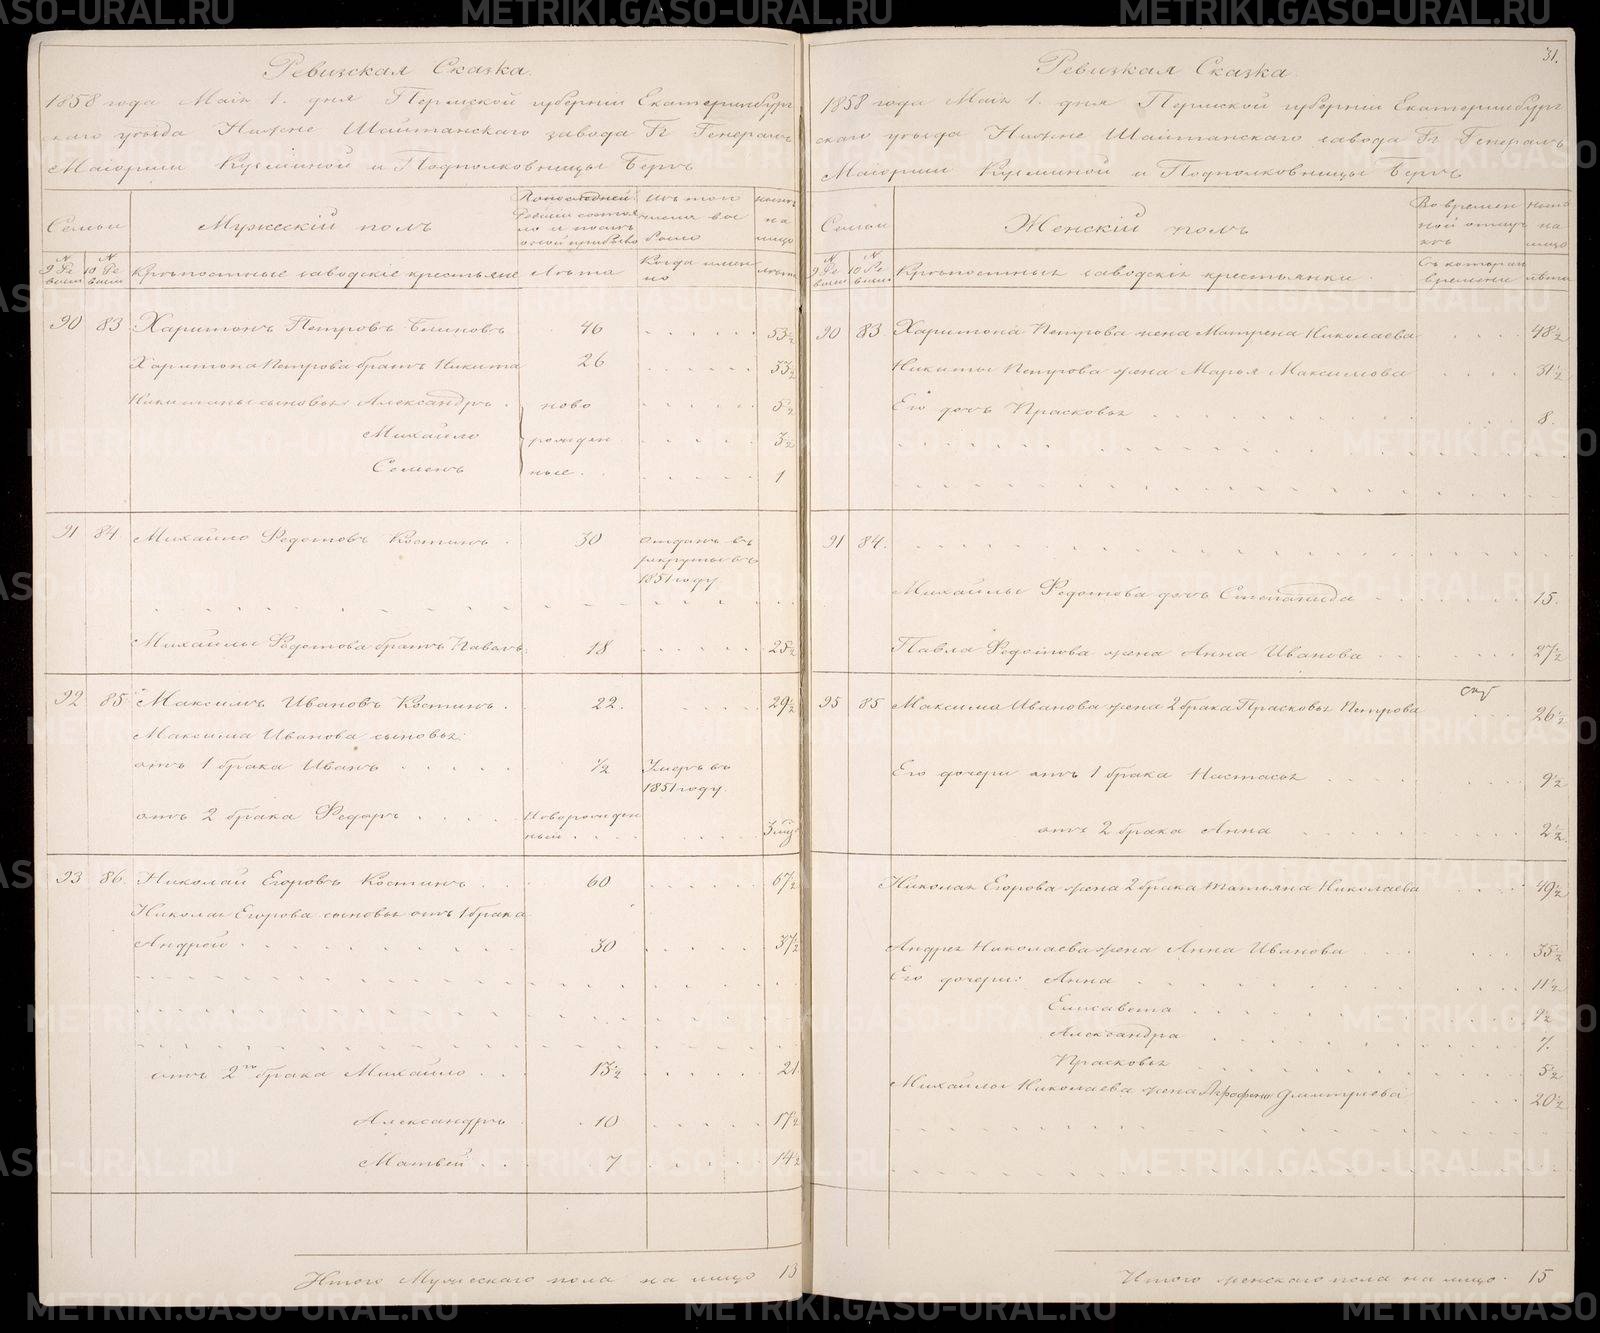 Ревизская Сказка.
1858 года Маія 1. дня Пермской губерніи Екатеринбург
скаго уѣзда Нижне Шайтанскаго завода Гг Генералъ
Маіорши Кузминой и Подполковницы Бергъ
Семьи
Мужескій полъ
По последней
Ревизіи состоя
ло и послѣ
оной прибыло
Изъ того
числа вы
было
Нынѣ
на
лицо
№ 9 Ре
визіи
№ 10 Ре
визіи
Крѣпостные заводскіе крестьяне
Лѣта
Когда имен
но
лѣта
90 83 Харитонъ Петровъ Блиновъ 46 53½
Харитона Петрова братъ Никита 26 33½
Никитины сыновья Александръ ново 5½
Михайло рожден 3½
Семенъ ные 1
91 84 Михайло Федотовъ Костинъ 30 отданъ въ
рекруты въ
1851 году
Михайлы Федотова братъ Павелъ 18 25½
92 85 Максимъ Ивановъ Костинъ 22 29½
Максима Иванова сыновья:
отъ 1 брака Иванъ ½ Умеръ въ
1851 году
отъ 2 брака Федоръ Новорожден
ный 3 мцъ
93 86 Николай Егоровъ Костинъ 60 67½
Николая Егорова сыновья отъ 1 брака
Андрей 30 37½
отъ 2го брака Михайло 13½ 21
Александръ 10 17½
Матвѣй 7 14½
Итого Мужескаго пола на лицо 13
31.
Ревизкая Сказка.
1858 года Маія 1. дня Пермской губерніи Екатеринбург
скаго уѣзда Нижне Шайтанскаго завода Гг Генералъ
Маіорши Кузминой и Подполковницы Бергъ
Семьи
Женскій полъ
Во времен
ной отлуч
кѣ
Нынѣ
на
лицо
№ 9 Ре
визіи
№ 10 Ре
визіи
Крѣпостныя заводскія крестьянки
Съ котораго
времени
лѣта
90 83 Харитона Петрова жена Матрена Николаева 48½
Никиты Петрова жена Марья Максимова 31½
Его дочь Прасковья 8.
91 84.
Михайлы Федотова дочь Степанида 15.
Павла Федотова жена Анна Иванова 27½
95 85 Максима Иванова жена 2 брака Прасковья Петрова 26½
Его дочери отъ 1 брака Настасья 9½
отъ 2 брака Анна 2½
Николая Егорова жена 2 брака Татьяна Николаева 49½
Андрея Николаева жена Анна Иванова 35½
Его дочери: Анна 11½
Елисавета 9½
Александра 7.
Прасковья 5½
Михайлы Николаева жена Аграфена Дмитріева 20½
Итого женскаго пола на лицо. 15
METRIKI.GASO-URAL.RU